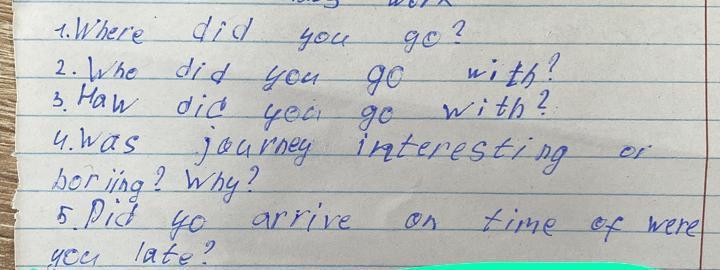 work
1. Where did you go?
2. Who did you go with?
3. Haw did you go with?
4. Was journey interesting or
boriing? Why?
5. Did yo arrive on time of were
you late?